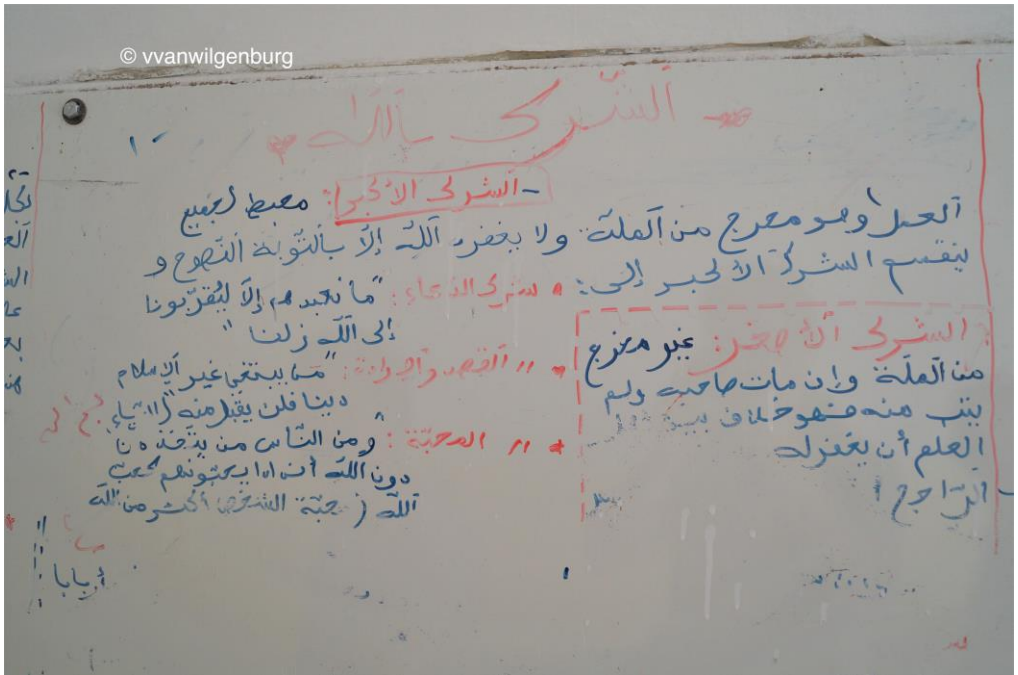 © vvanwilgenburg
الشرك بالله
- الشرك الأكبر: محبط لجميع
العمل وهو مخرج من الملة ولا يغفره الله إلا بالتوبة النصوح و
ينقسم الشرك الأكبر إلى:
* شرك الدعاء: "ما نعبدهم إلا ليقربونا
إلى الله زلفا"
* // القصد والإرادة: "من يبتغي غير الإسلام
دينا فلن يقبل منه"
* // المحبة: "ومن الناس من يتخذ من
دون الله أندادا يحبونهم كحب
الله (محبة الشخص أكثر من الله
الشرك الأصغر: غير مخرج
من الملة وإن مات صاحبه ولم
يتب منه فهو خلاف بين
العلم أن يغفر له
الراجح
أربابا